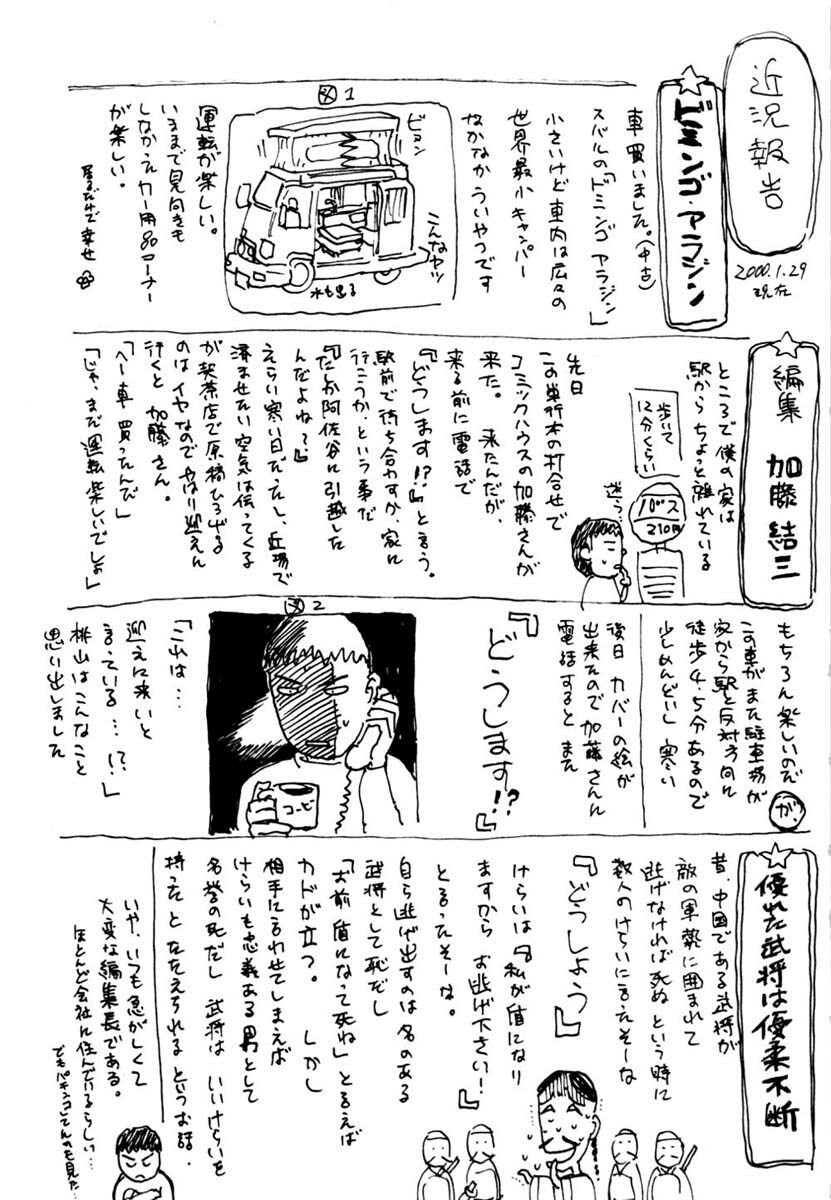 近況報告
2000.1.29
現在
☆ドミンゴ・アラジン
車買いました。(中古)
スバルの「ドミンゴアラジン」
小さいけど車内は広々の
世界最小キャンパー
なかなかういやつです
図1
ビヨン
こんなヤツ
水も出る
運転が楽しい。
いままで見向きも
しなかったカー用品コーナー
が楽しい。
居るだけで幸せ
☆編集 加藤結三
ところで僕の家は
駅からちょっと離れている
歩いて
12分くらい
バス
210円
迷う…
先日
この単行本の打合せで
コミックハウスの加藤さんが
来た。来たんだが、
来る前に電話で
『どうします!?』と言う。
駅前で待ち合わすか、家に
行こうか、という事だ
『たしか阿佐谷に引越した
んだよね?』
えらい寒い日だったし、近場で
済ませたい空気は伝ってくる
が喫茶店で原稿ひろげる
のはイヤなのでやはり迎えに
行くと加藤さん。
「へー車買ったんだ」
「じゃ、まだ運転楽しいでしょ」
もちろん楽しいのだが
この車がまた駐車場が
家から駅と反対方向に
徒歩4.5分あるので
少しめんどいし寒い
後日カバーの絵が
出来たので加藤さんに
電話するとまた
『どうします!?』
図2
コーヒー
「これは…
迎えに来いと
言っている…!?」
桃山はこんなこと
思い出しました
☆優れた武将は優柔不断
昔、中国である武将が
敵の軍勢に囲まれて
逃げなければ死ぬという時に
数人のけらいに言えそーな
『どうしよう』
けらいは『私が盾になり
ますからお逃げ下さい!』
と言ったそーな。
自ら逃げ出すのは名のある
武将として恥だし
「お前盾になって死ね」と言えば
カドが立つ。しかし
相手に言わせてしまえば
けらいも忠義ある男として
名誉の死だし武将はいいけらいを
持ったとたたえられるというお話。
いや、いつも急がしくて
大変な編集長である。
ほとんど会社に住んでいるらしい…
でもパチンコしてんのも見た…